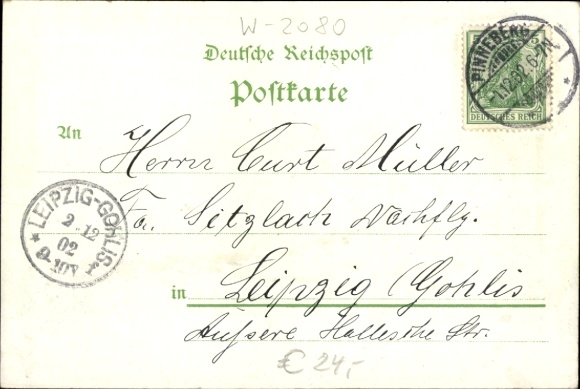 W-2080
Deutsche Reichspost
Postkarte
PINNEBERG
1.12.02. 6-7N.
DEUTSCHES REICH
An
Herrn Curt Müller
Fa. Sitzlach Nachflg.
LEIPZIG-GOHLIS
2.12
02
9-10V
in Leipzig Gohlis
Äußere Hallesche Str.
€ 24,-